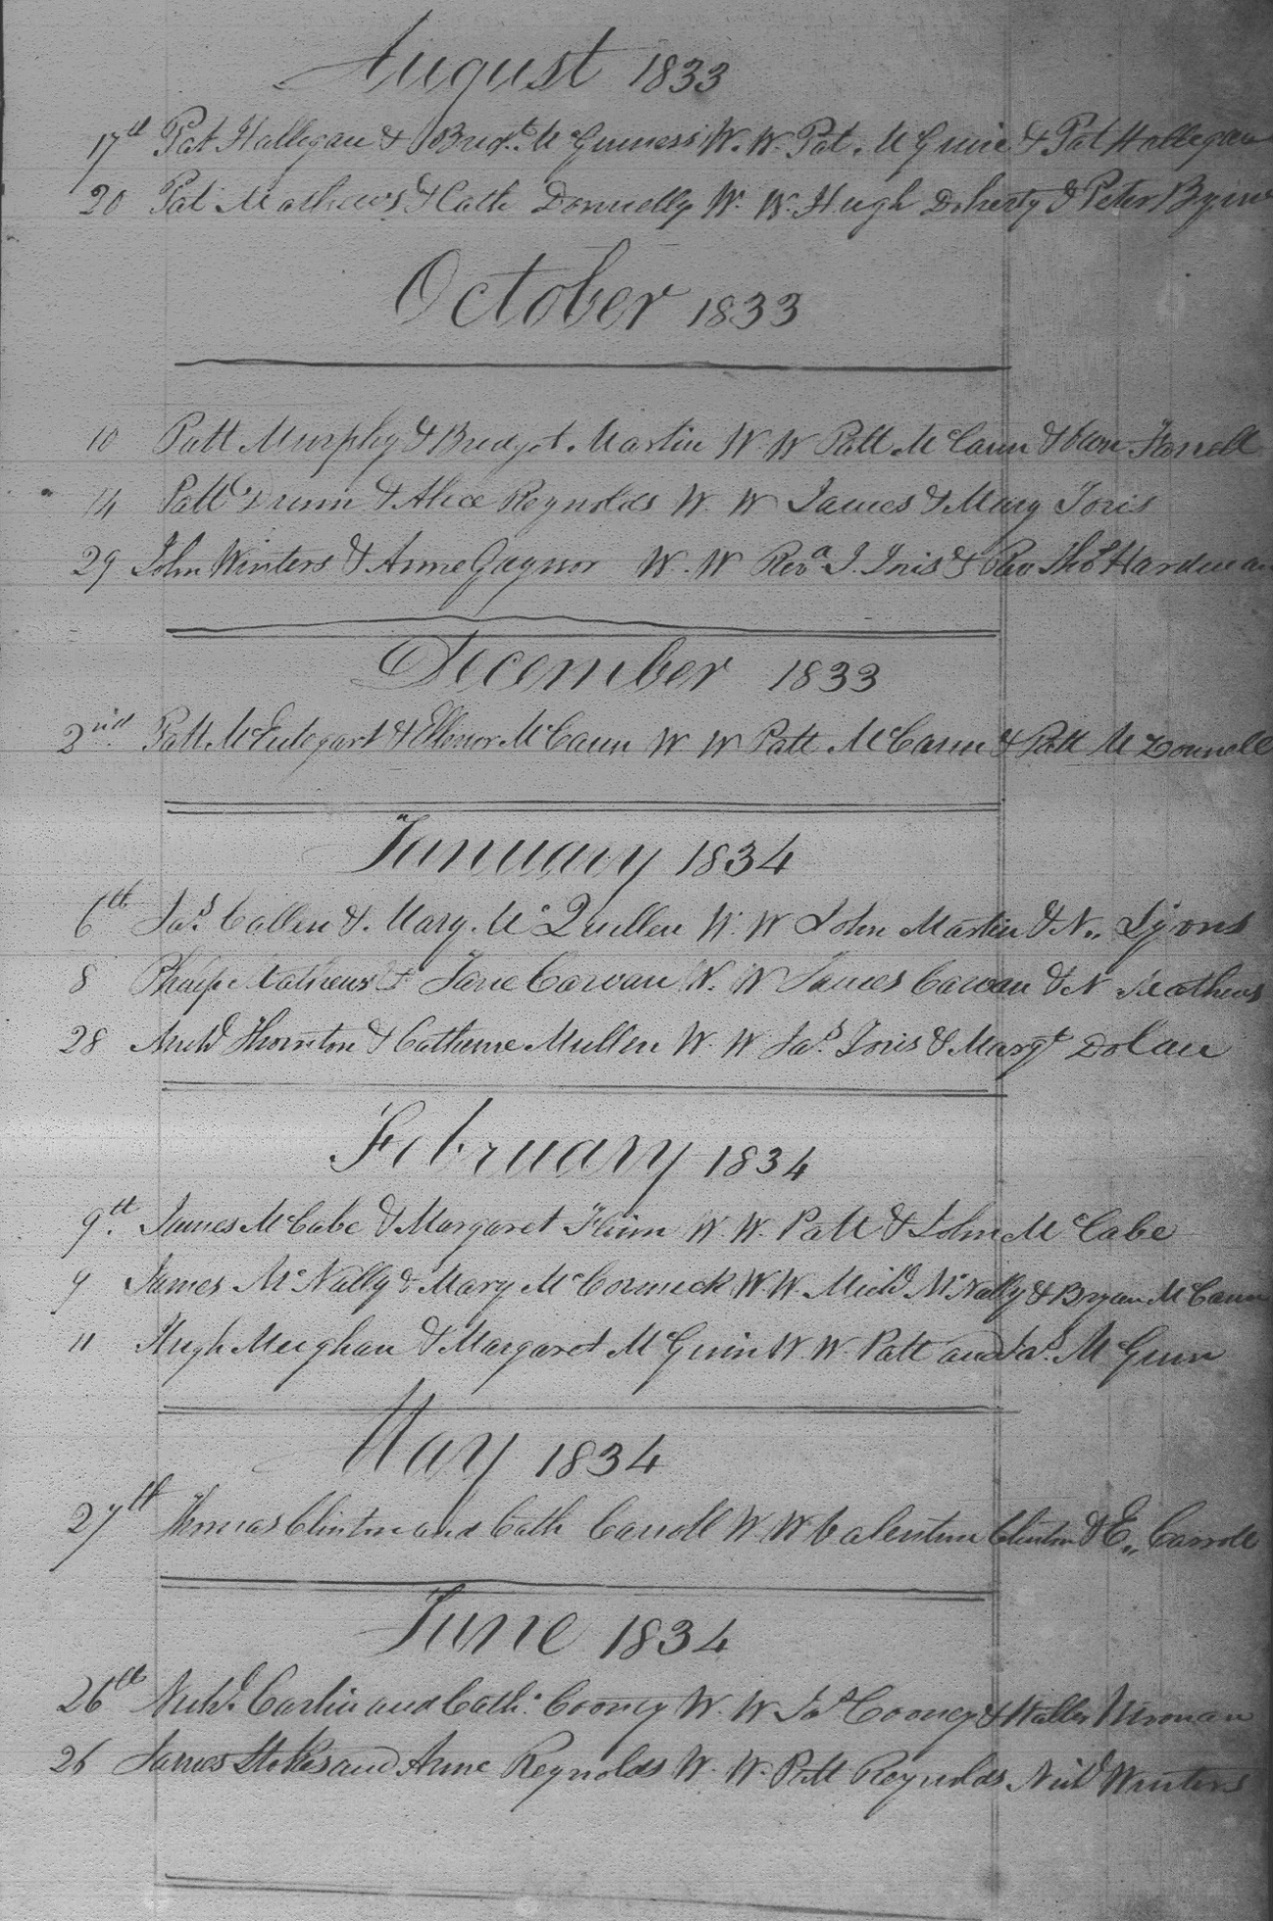 August 1833
17th Pat Hallegan & Bridt. McGuiness W. W. Pat. McGuire & Pat Hallegan
20 Pat Mathews & Cath Donnelly W. W. Hugh Doherty & Peter Byrne
October 1833
10 Patt Murphy & Bridget Martin W. W Patt McCann & Farrell
14 Patt Dunn & Alice Reynolds W. W James & Mary Toris
29 John Winters & Anne Gaynor W. W Revd. J. Inis & Rev Thos Hardman
December 1833
2nd Patt McEntegart & Ellenor McCann W W Patt McCann & Patt McDonnell
January 1834
6th Jas. Callen & Mary McQuillen W. W John Martin & N. Lyons
8 Philip Mathews & Jane Carvan W. W James Carvan & N Mathews
28 Michd Thornton & Catherine Mullen W. W Jas. Toris & Margt Dolan
February 1834
9th. James McCabe & Margaret Flinn W. W. Patt & John McCabe
9 James McNally & Mary McCormick W. W. Michd McNally & Bryan McCann
11 Hugh Meighan & Margaret McGuin W. W. Patt and Jas. McGuin
May 1834
27th Thomas Clinton and Cath Carroll W. W Valentine Clinton & E. Carroll
June 1834
26th Michd. Carlin and Cath. Cooney W. W Jas Cooney &
26 James Stokes and Anne Reynolds W. W. Patt Reynolds Michd Winters